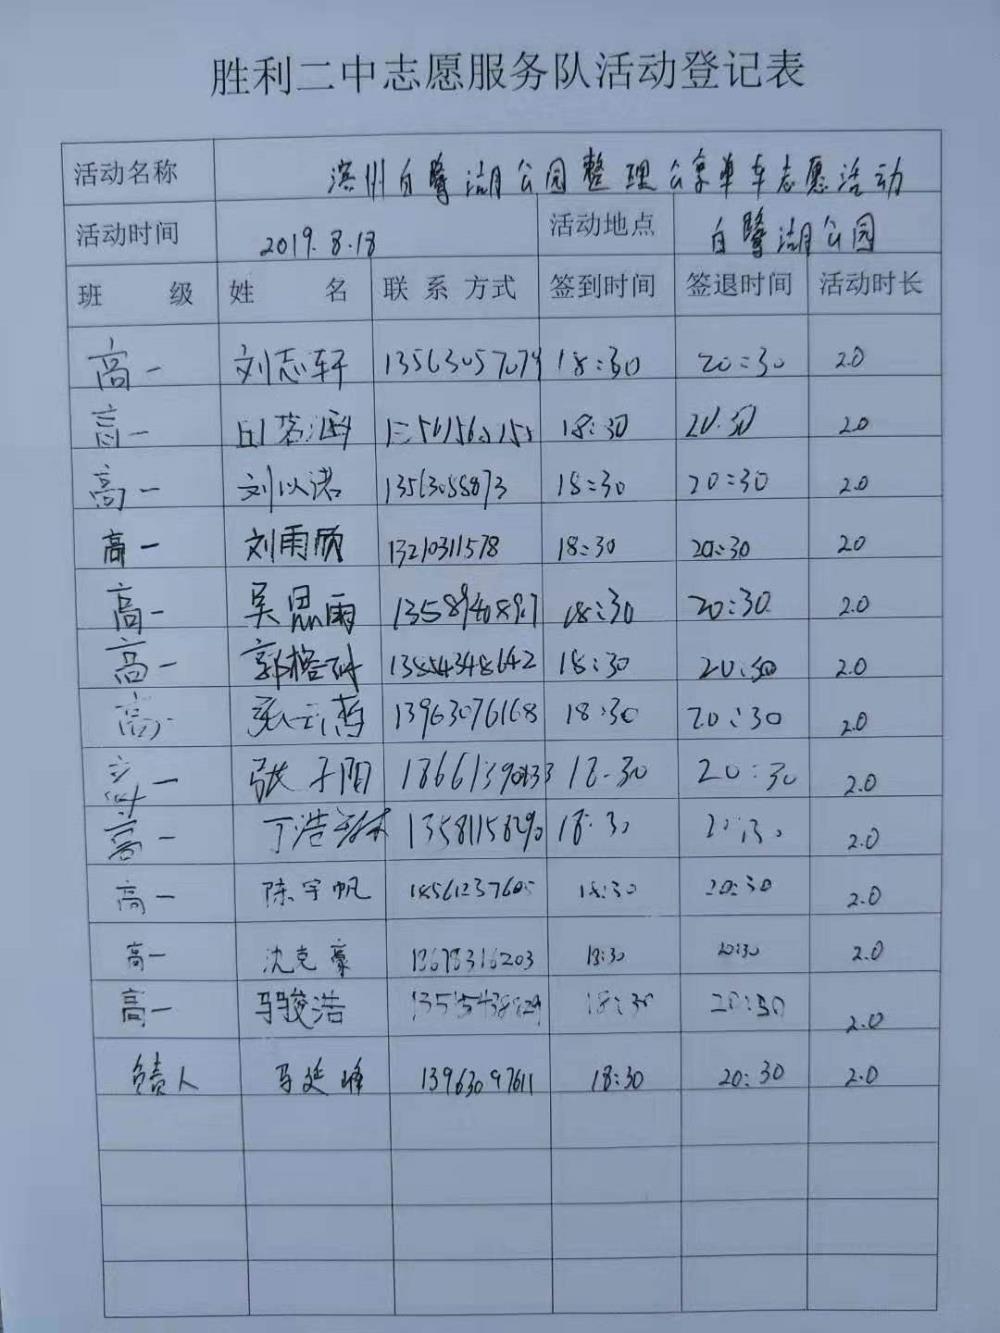 胜利二中志愿服务队活动登记表
活动名称 滨州白鹭湖公园整理公享单车志愿活动
活动时间 2019.8.18 活动地点 白鹭湖公园
班级 姓名 联系方式 签到时间 签退时间 活动时长
高一 刘志轩 18:30 20:30 2.0
高一 18:30 20:30 2.0
高一 刘以诺 13563058873 18:30 20:30 2.0
高一 刘雨欣 13210311578 18:30 20:30 2.0
高一 吴思雨 18:30 20:30 2.0
高一 13854348642 18:30 20:30 2.0
高一 13963076168 18:30 20:30 2.0
高一 张子阳 18:30 20:30 2.0
高一 丁浩 13581158290 18:30 20:30 2.0
高一 陈宇帆 18561237605 18:30 20:30 2.0
高一 沈克豪 13678316203 18:30 20:30 2.0
高一 马骏浩 18:30 20:30 2.0
负责人 马延峰 13963097611 18:30 20:30 2.0